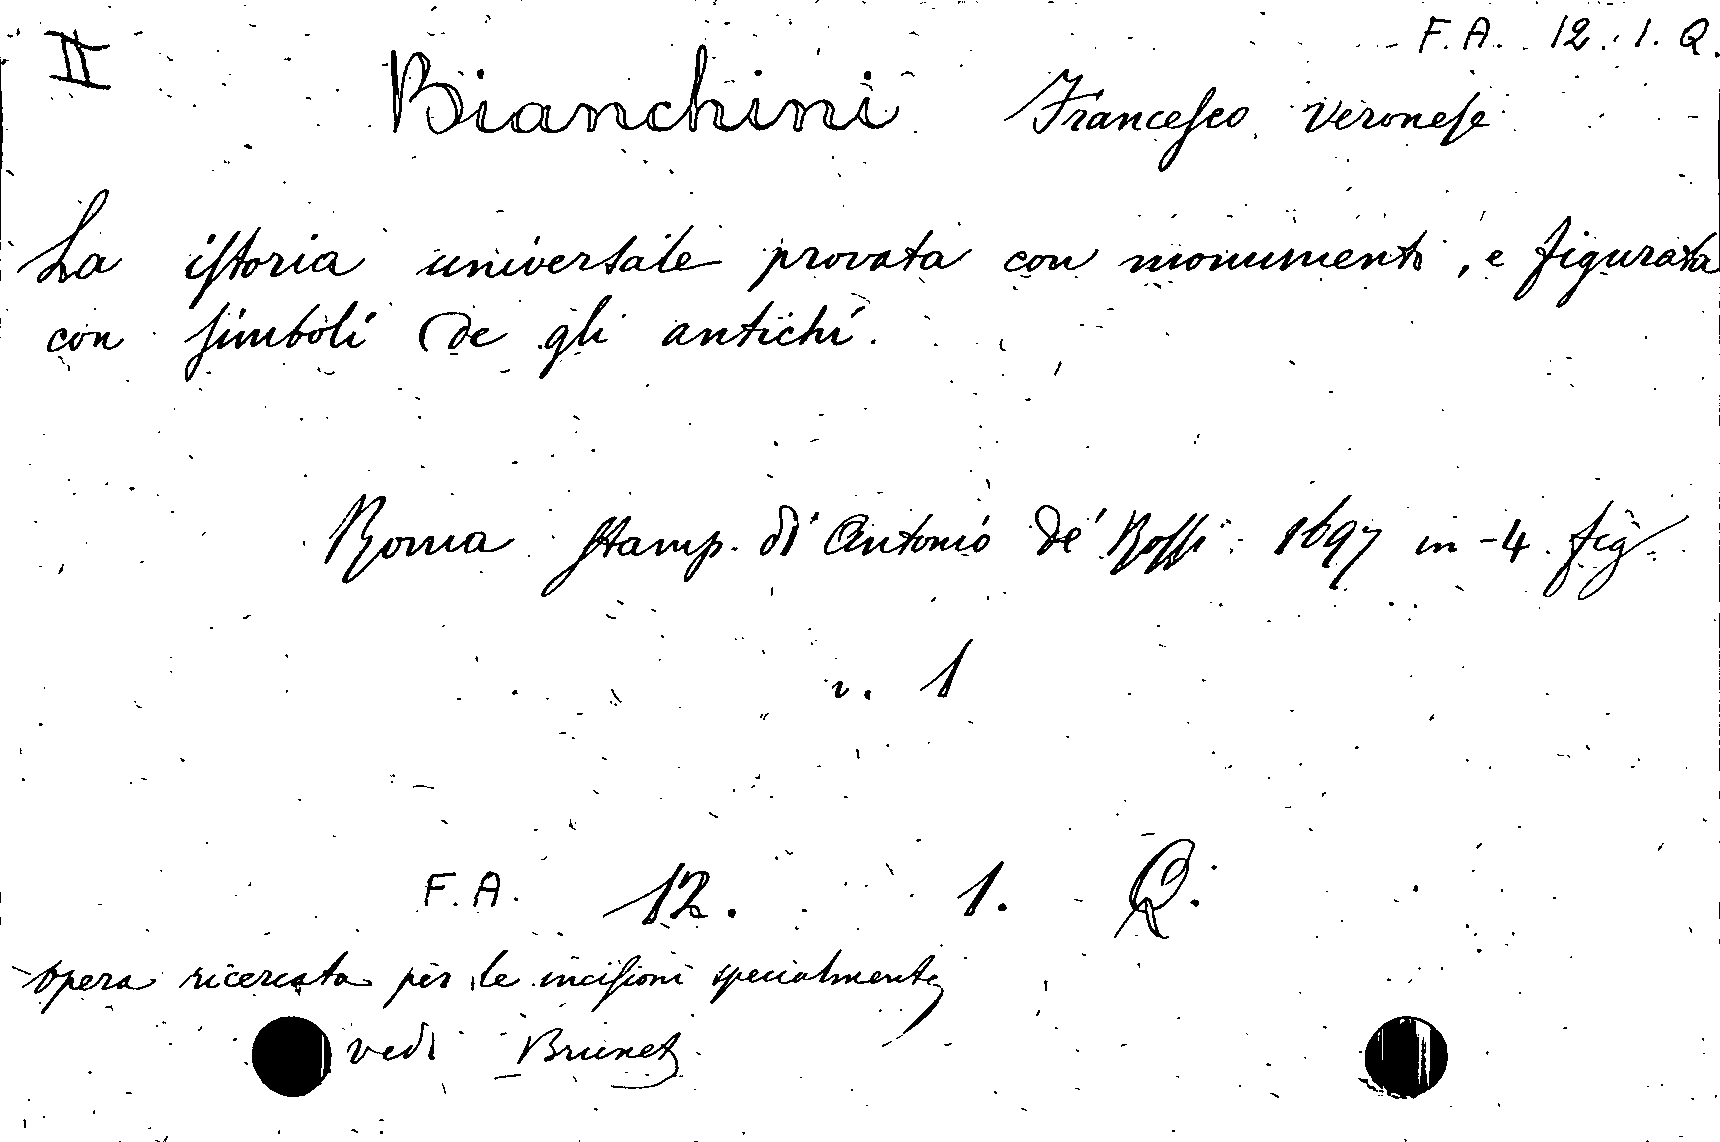 II
F. A. 12. 1. Q.
Bianchini Francesco Veronese
La istoria universale provata con monumenti, e figurata
con simboli de gli antichi.
Roma Stamp. di Antonio de' Rossi 1697 in-4. fig.
v. 1
F. A. 12. 1. Q.
Opera ricercata per le incisioni specialmente
vedi Brunet